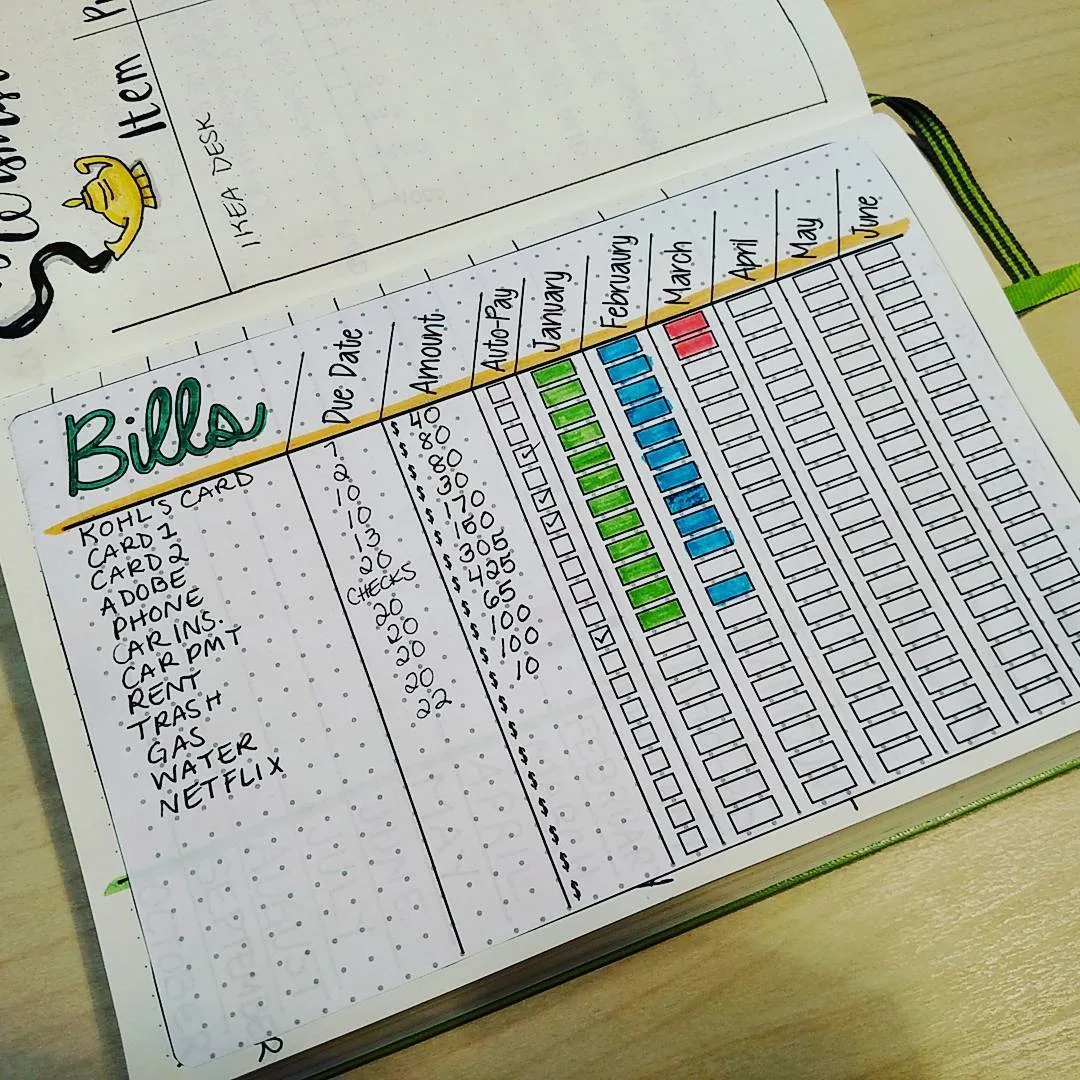 Item
IKEA DESK
Bills Due Date Amount Auto-Pay January Februaury March April May June
KOHL'S CARD $ 40
CARD 1 2 $ 80
CARD 2 10 $ 80
ADOBE 10 $ 30
PHONE 13 $ 170
CAR INS. 20 $ 150
CAR PMT CHECKS $ 305
RENT 20 $ 425
TRASH 20 $ 65
GAS 20 $ 100
WATER 20 $ 100
NETFLIX 22 $ 10
$
$
$
$
$
$
$
$